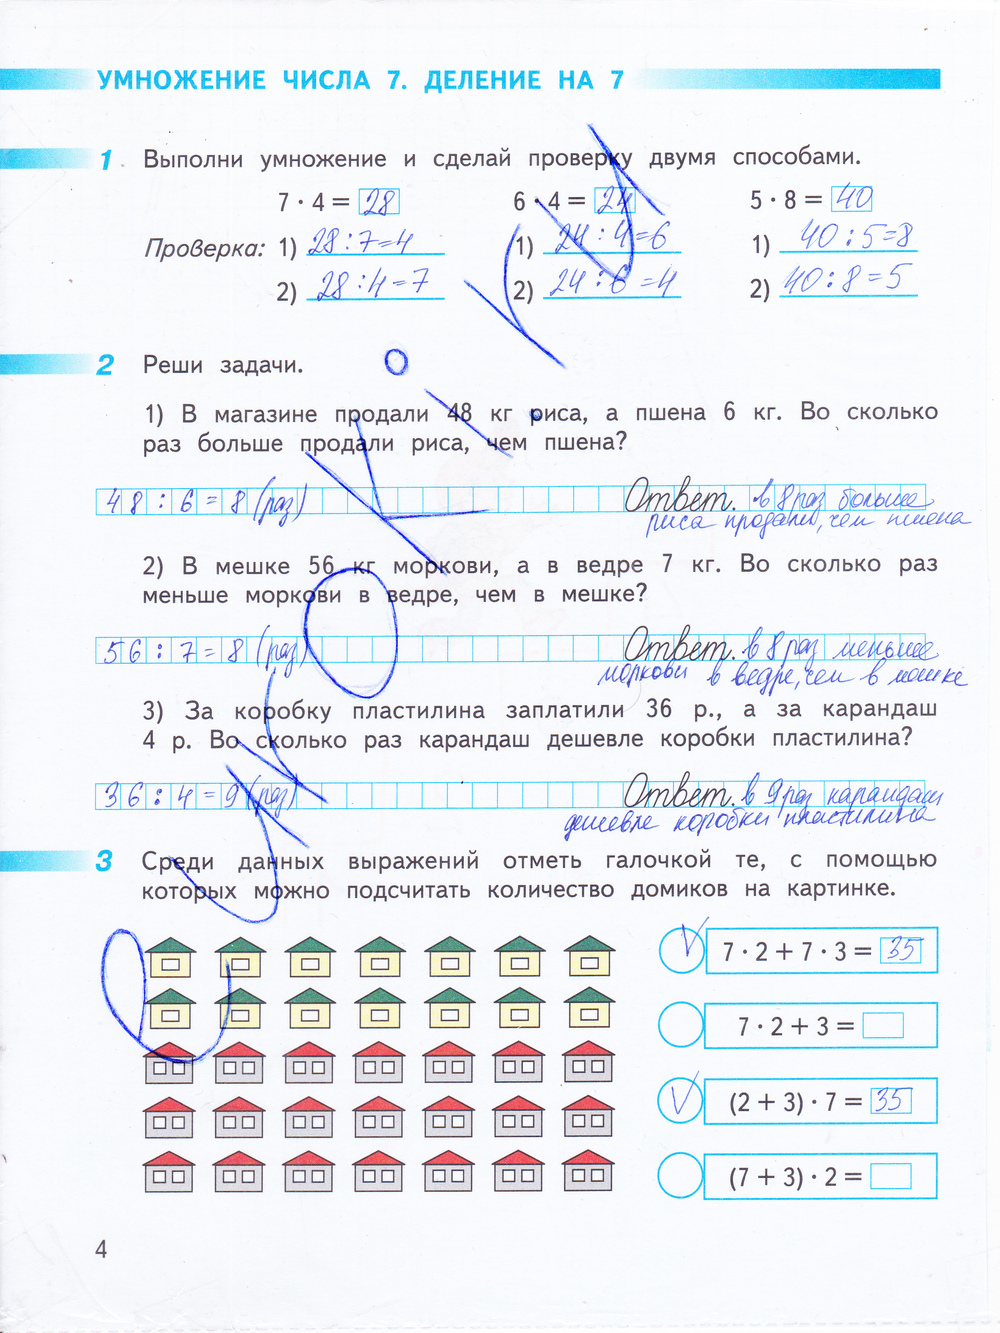 УМНОЖЕНИЕ ЧИСЛА 7. ДЕЛЕНИЕ НА 7
1 Выполни умножение и сделай проверку двумя способами.
7 · 4 = 28 6 · 4 = 24 5 · 8 = 40
Проверка: 1) 28 : 7 = 4 1) 24 : 4 = 6 1) 40 : 5 = 8
2) 28 : 4 = 7 2) 24 : 6 = 4 2) 40 : 8 = 5
2 Реши задачи.
1) В магазине продали 48 кг риса, а пшена 6 кг. Во сколько
раз больше продали риса, чем пшена?
48 : 6 = 8 (раз) Ответ. в 8 раз больше
риса продали, чем пшена
2) В мешке 56 кг моркови, а в ведре 7 кг. Во сколько раз
меньше моркови в ведре, чем в мешке?
56 : 7 = 8 (раз) Ответ. в 8 раз меньше
моркови в ведре, чем в мешке
3) За коробку пластилина заплатили 36 р., а за карандаш
4 р. Во сколько раз карандаш дешевле коробки пластилина?
36 : 4 = 9 (раз) Ответ. в 9 раз карандаш
дешевле коробки пластилина
3 Среди данных выражений отметь галочкой те, с помощью
которых можно подсчитать количество домиков на картинке.
V 7 · 2 + 7 · 3 = 35
7 · 2 + 3 =
V (2 + 3) · 7 = 35
(7 + 3) · 2 =
4